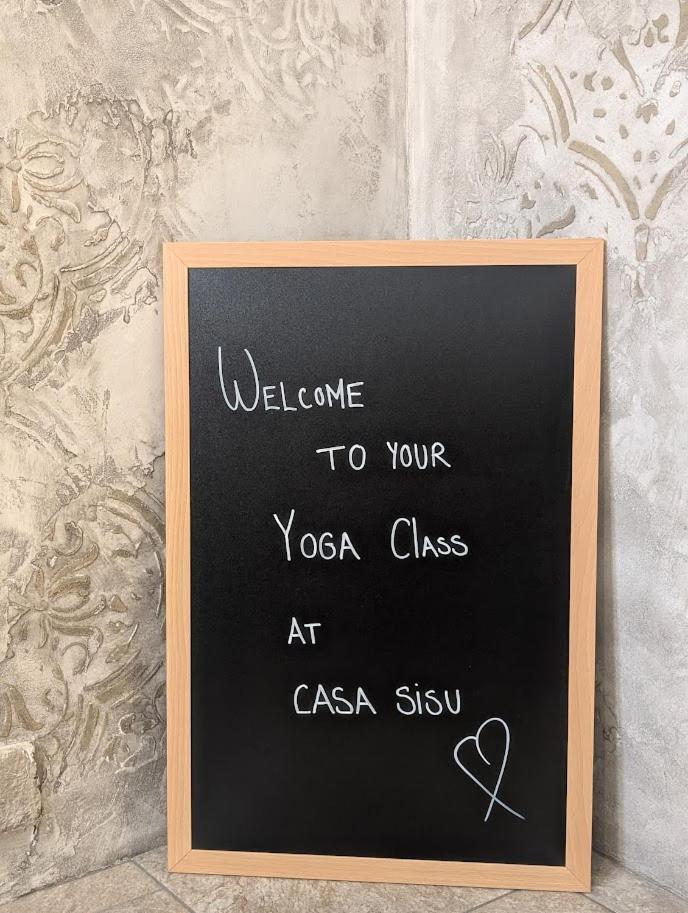 WELCOME
TO YOUR
YOGA Class
AT
CASA SiSU